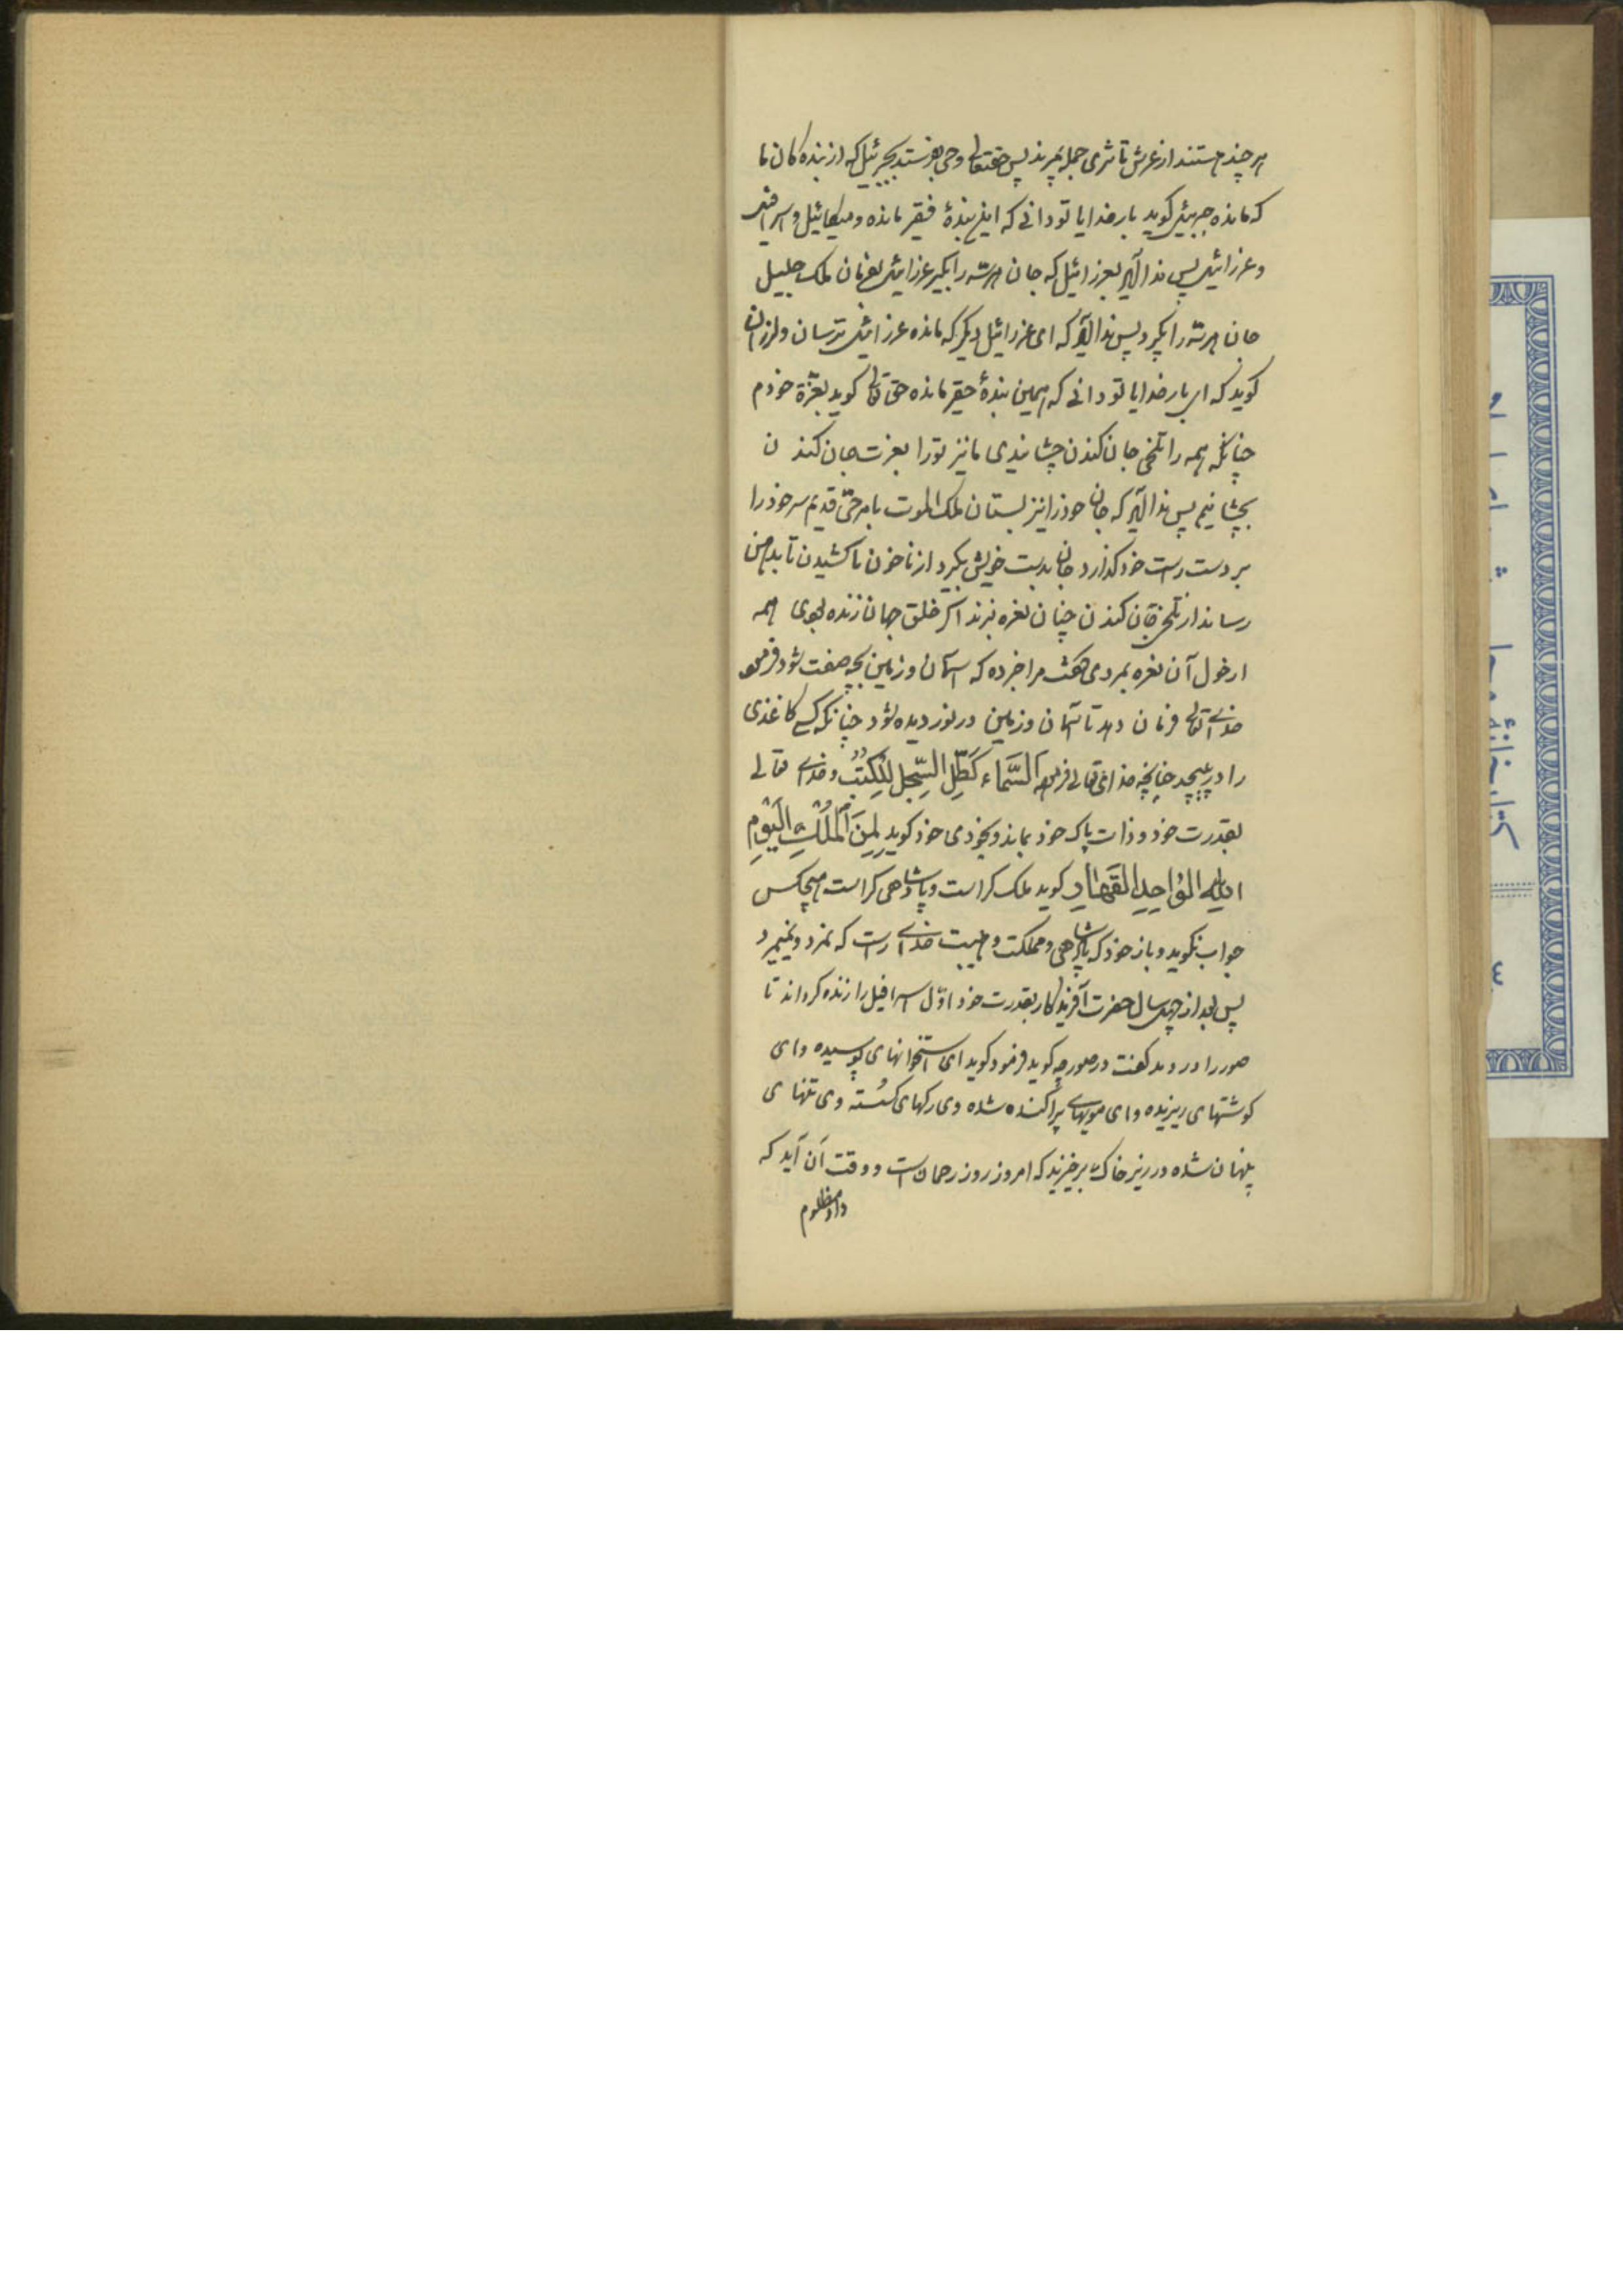 هر چند هستند از عرش تا ثری جمله بمیرند پس حقتعالی وحی بفرستد بجبرئیل که از بنده کان ما
که مانده جبرئیل کوید بار خدایا تو دانی که این بندۀ فقیر مانده و میکائیل و اسرافیل
و عزرائیل پس ندا آید بعزرائیل که جان هر سه را بکیر عزرائیل بفرمان ملک جلیل
جان هر سه را بکیرد پس ندا آید که ای عزرائیل دیکر که مانده عزرائیل ترسان و لرزان
کوید که ای بار خدایا تو دانی که همین بندۀ حقیر مانده حق تعالی کوید بعزّة خودم
چنانکه همه را تلخی جان کندن چشانیدی ما نیز تو را بعزت جان کندن
بچشانیم پس ندا آید که جان خود را نیز بستان ملک الموت بامر حیّ قدیم سر خود را
بر دست راست خود کذارد و جان بدست خویش بکیرد از ناخن پا کشیدن تا بدهن
رساند از تلخی جان کندن چنان نعره بزند اکر خلق جهان زنده بودی همه
از هول آن نعره بمردی کفت مرا خبر ده که آسمان و زمین بچه صفت شود فرمود
خدای تعالی فرمان دهد تا آسمان و زمین در نوردیده شود چنانکه کسی کاغذی
را در پیچد چنانچه خدای تعالی فرموده السَّمَاء كَطَيِّ السِّجِلِّ لِلْكُتُبِ و خدای تعالی
بقدرت خود و ذات پاک خود بماند و بخودی خود کوید لِمَنِ الْمُلْكُ الْيَوْمَ
لِلّٰهِ الْوَاحِدِ الْقَهَّارِ کوید ملک کراست و پادشاهی کراست هیچکس
جواب نکوید و باز خود که پادشاهی و مملکت و هیبت خدای راست که نمرد و نمیمرد
پس بعد از چهل سال حضرت آفریدکار بقدرت خود اوّل اسرافیل را زنده کرداند تا
صور را در دمد کفت در صور چه کوید فرمود کوید ای استخوانهای پوسیده و ای
کوشتهای ریزیده و ای مویهای پراکنده شده وی رکهای کسسته وی تنهای
پنهان شده در زیر خاک برخیزید که امروز روز رحمان است و وقت آن آید که
داد مظلوم